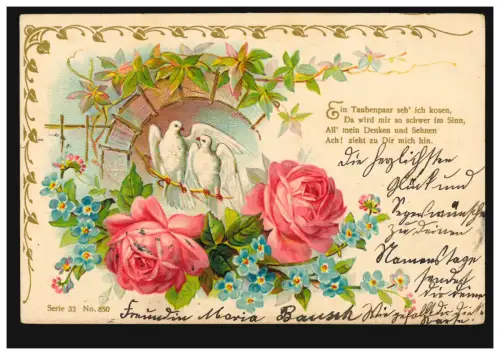 Ein Taubenpaar seh' ich kosen,
Da wird mir so schwer im Sinn,
All' mein Denken und Sehnen
Ach! zieht zu Dir mich hin.
Die herzlichsten
Glück und
Segenswünsche
zu Deinem
Namenstage
sendet
dir deine
Freundin Maria Bausch
Wie gefällt dir diese
Karte?
Serie 33 No. 850